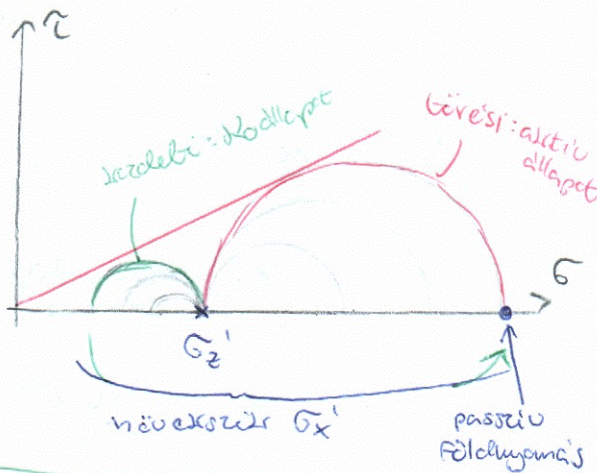 τ
kezdeti: K0 állapot
törési: aktív
állapot
σ
σz'
növekszik σx'
passzív
földnyomás